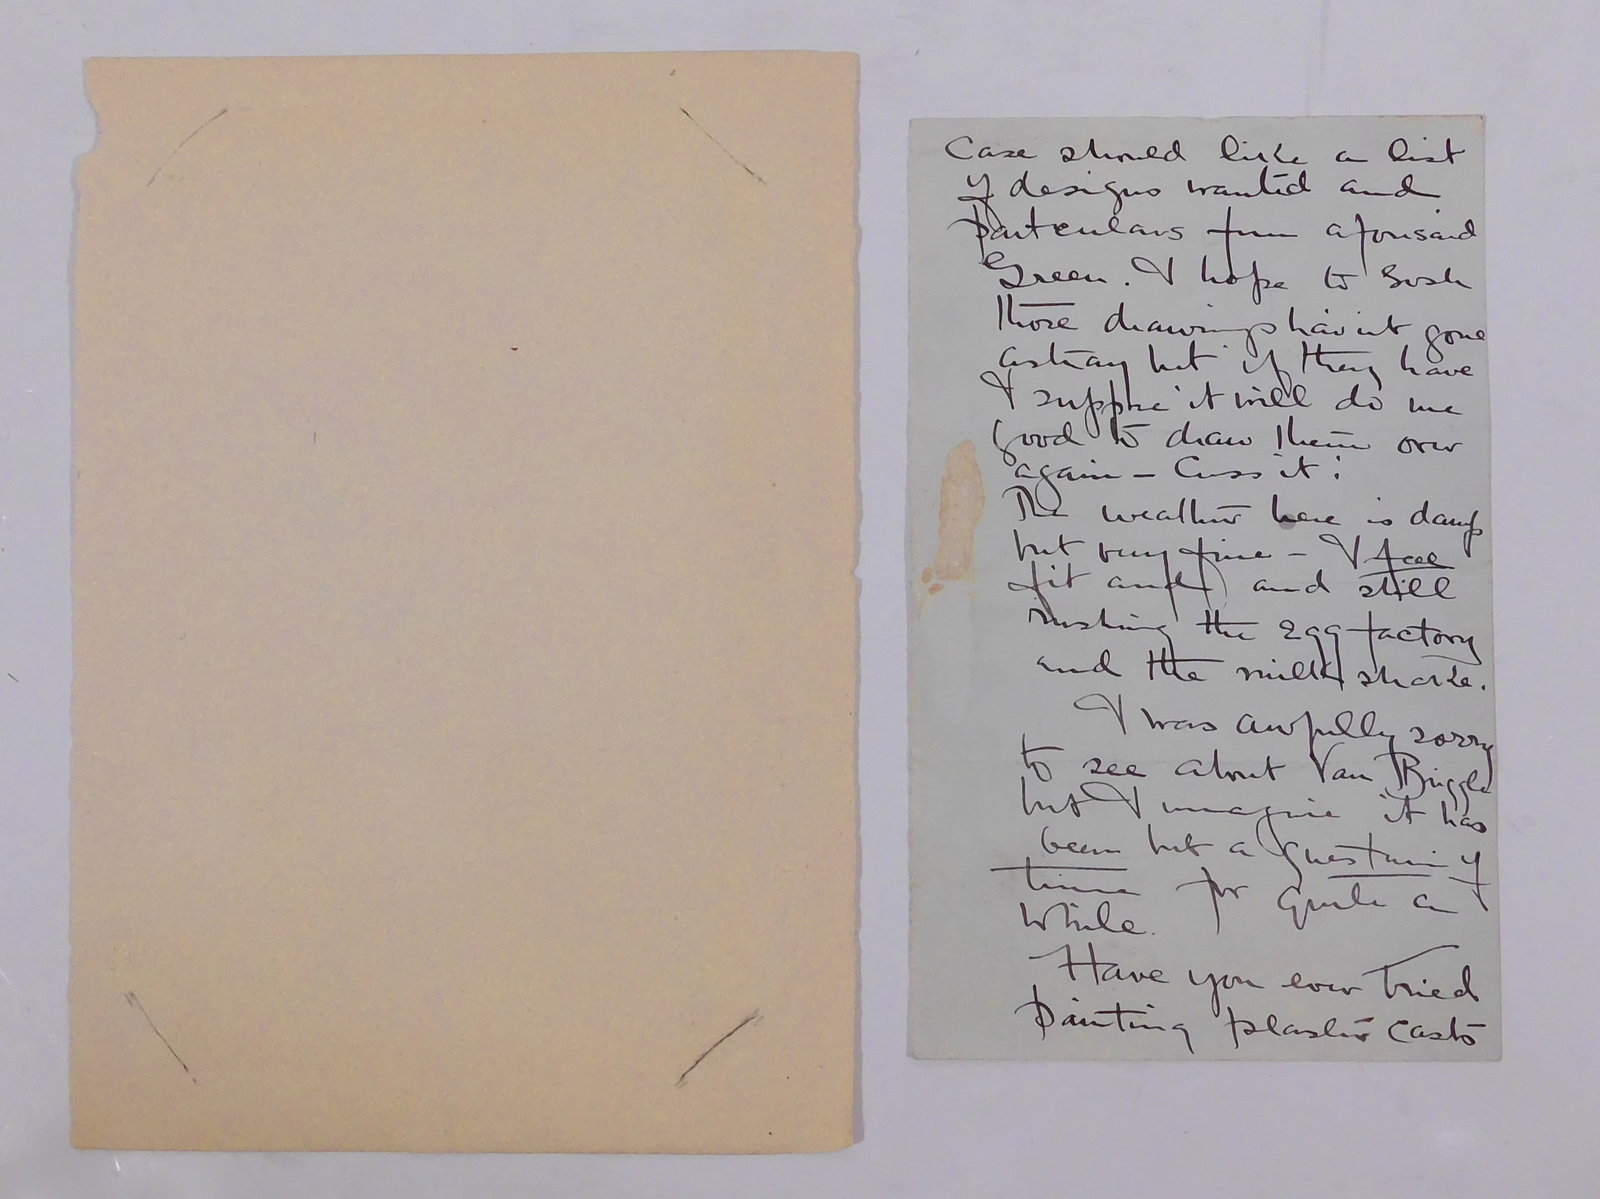 Case should like a list
of designs wanted and
particulars from aforesaid
Green. I hope to Gosh
those drawings hav'nt gone
astray but if they have
I suppose it will do me
good to draw them over
again – Cuss it!
The weather here is damp
but very fine – I feel
fit and still
rushing the egg factory
and the milk shake.
I was awfully sorry
to see about Van Briggle
but I imagine it has
been but a question of
time for quite a
while.
Have you ever tried
painting plaster casts